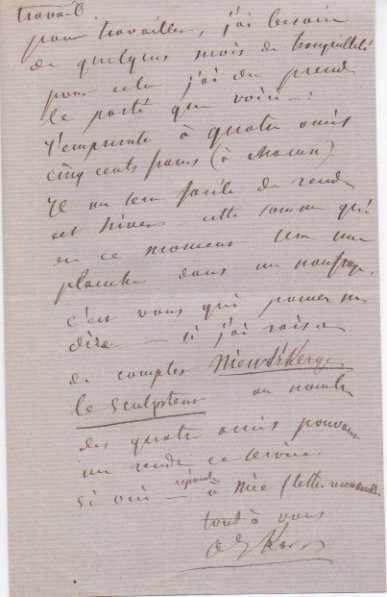 travail.
pour travailler, j'ai besoin
de quelques mois de tranquillité
pour cela j'ai du prendre
le parti que voici — :
J'emprunte à quatre amis
cinq cents francs (à chacun)
Il me sera facile de rendre
cet hiver cette somme qui
en ce moment sera une
planche dans un naufrage.
c'est vous qui pouvez me
dire — si j'ai raison
de compter Nieuwerkerke
le sculpteur au nombre
des quatre amis pouvant
me rendre ce service
si oui — réponse à Nice (lettre recommandée
tout à vous